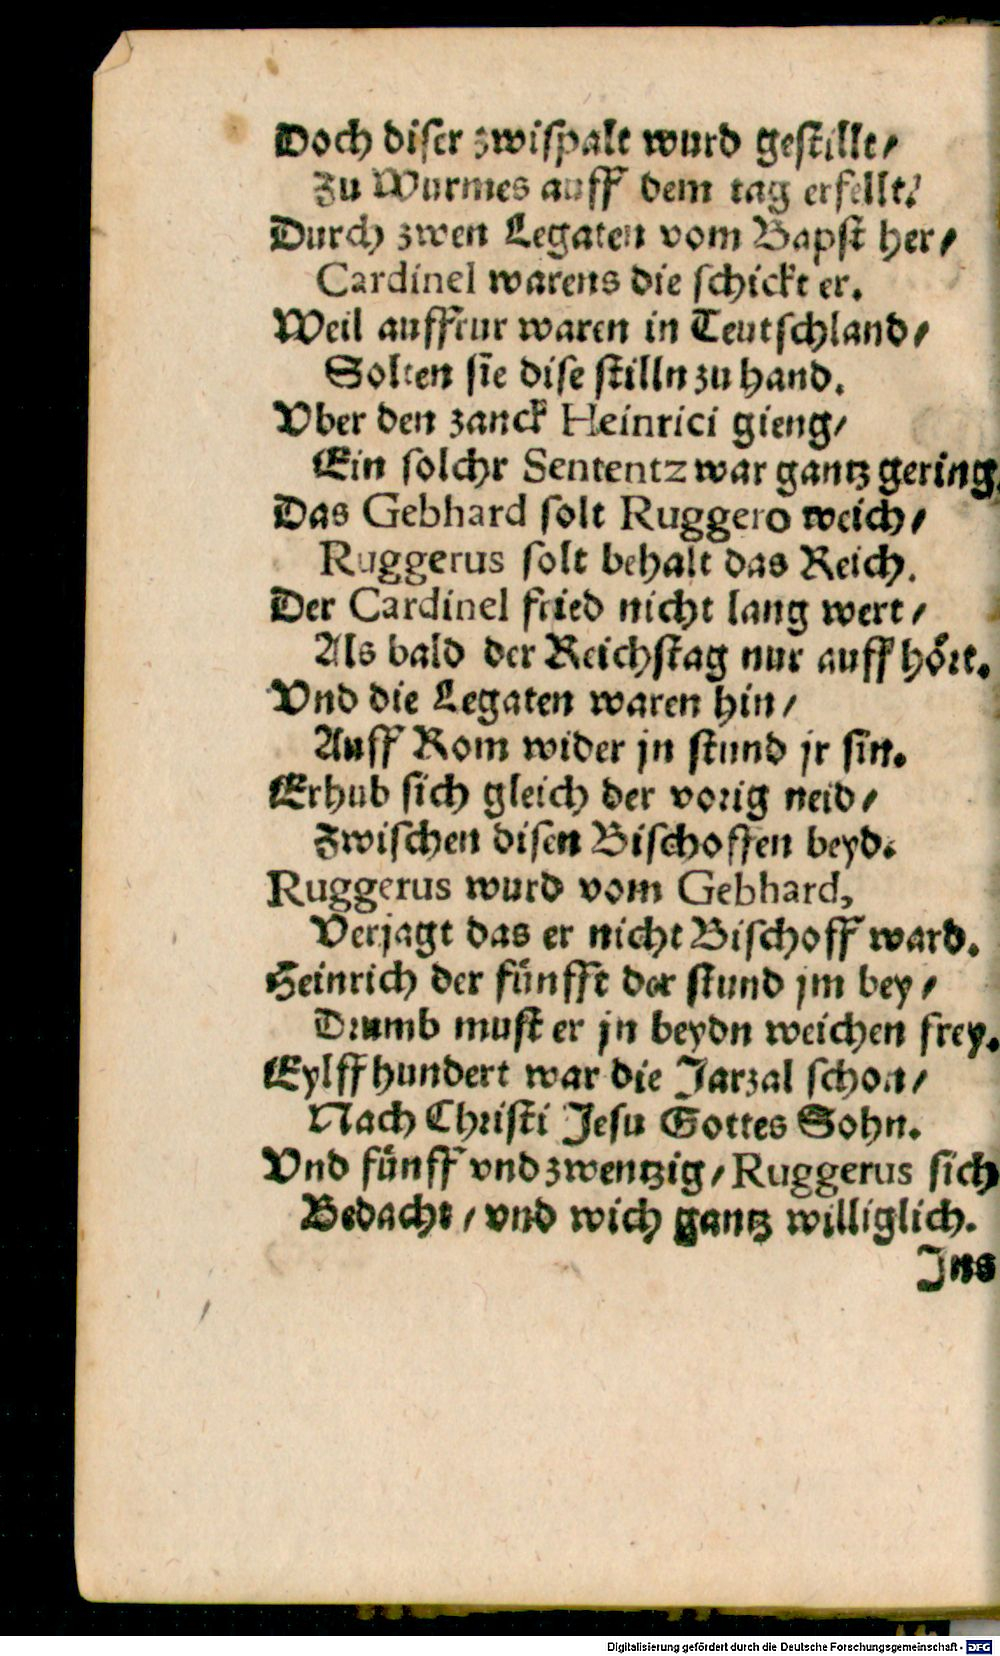 Doch diser zwispalt wurd gestillt/
Zu Wurmes auff dem tag erfellt/
Durch zwen Legaten vom Bapst her/
Cardinel warens die schickt er.
Weil auffrur waren in Teutschland/
Solten sie dise stilln zu hand.
Vber den zanck Heinrici gieng/
Ein solchr Sententz war gantz gering,
Das Gebhard solt Ruggero weich/
Ruggerus solt behalt das Reich.
Der Cardinel fried nicht lang wert/
Als bald der Reichstag nur auff hört.
Vnd die Legaten waren hin/
Auff Rom wider jn stund jr sin.
Erhub sich gleich der vorig neid/
Zwischen disen Bischoffen beyd.
Ruggerus wurd vom Gebhard,
Verjagt das er nicht Bischoff ward.
Heinrich der fünfft der stund jm bey/
Drumb must er jn beydn weichen frey.
Eylff hundert war die Jarzal schon/
Nach Christi Jesu Gottes Sohn.
Vnd fünff vnd zwentzig/ Ruggerus sich
Bedacht/ vnd wich gantz williglich.
Jns
Digitalisierung gefördert durch die Deutsche Forschungsgemeinschaft - DFG